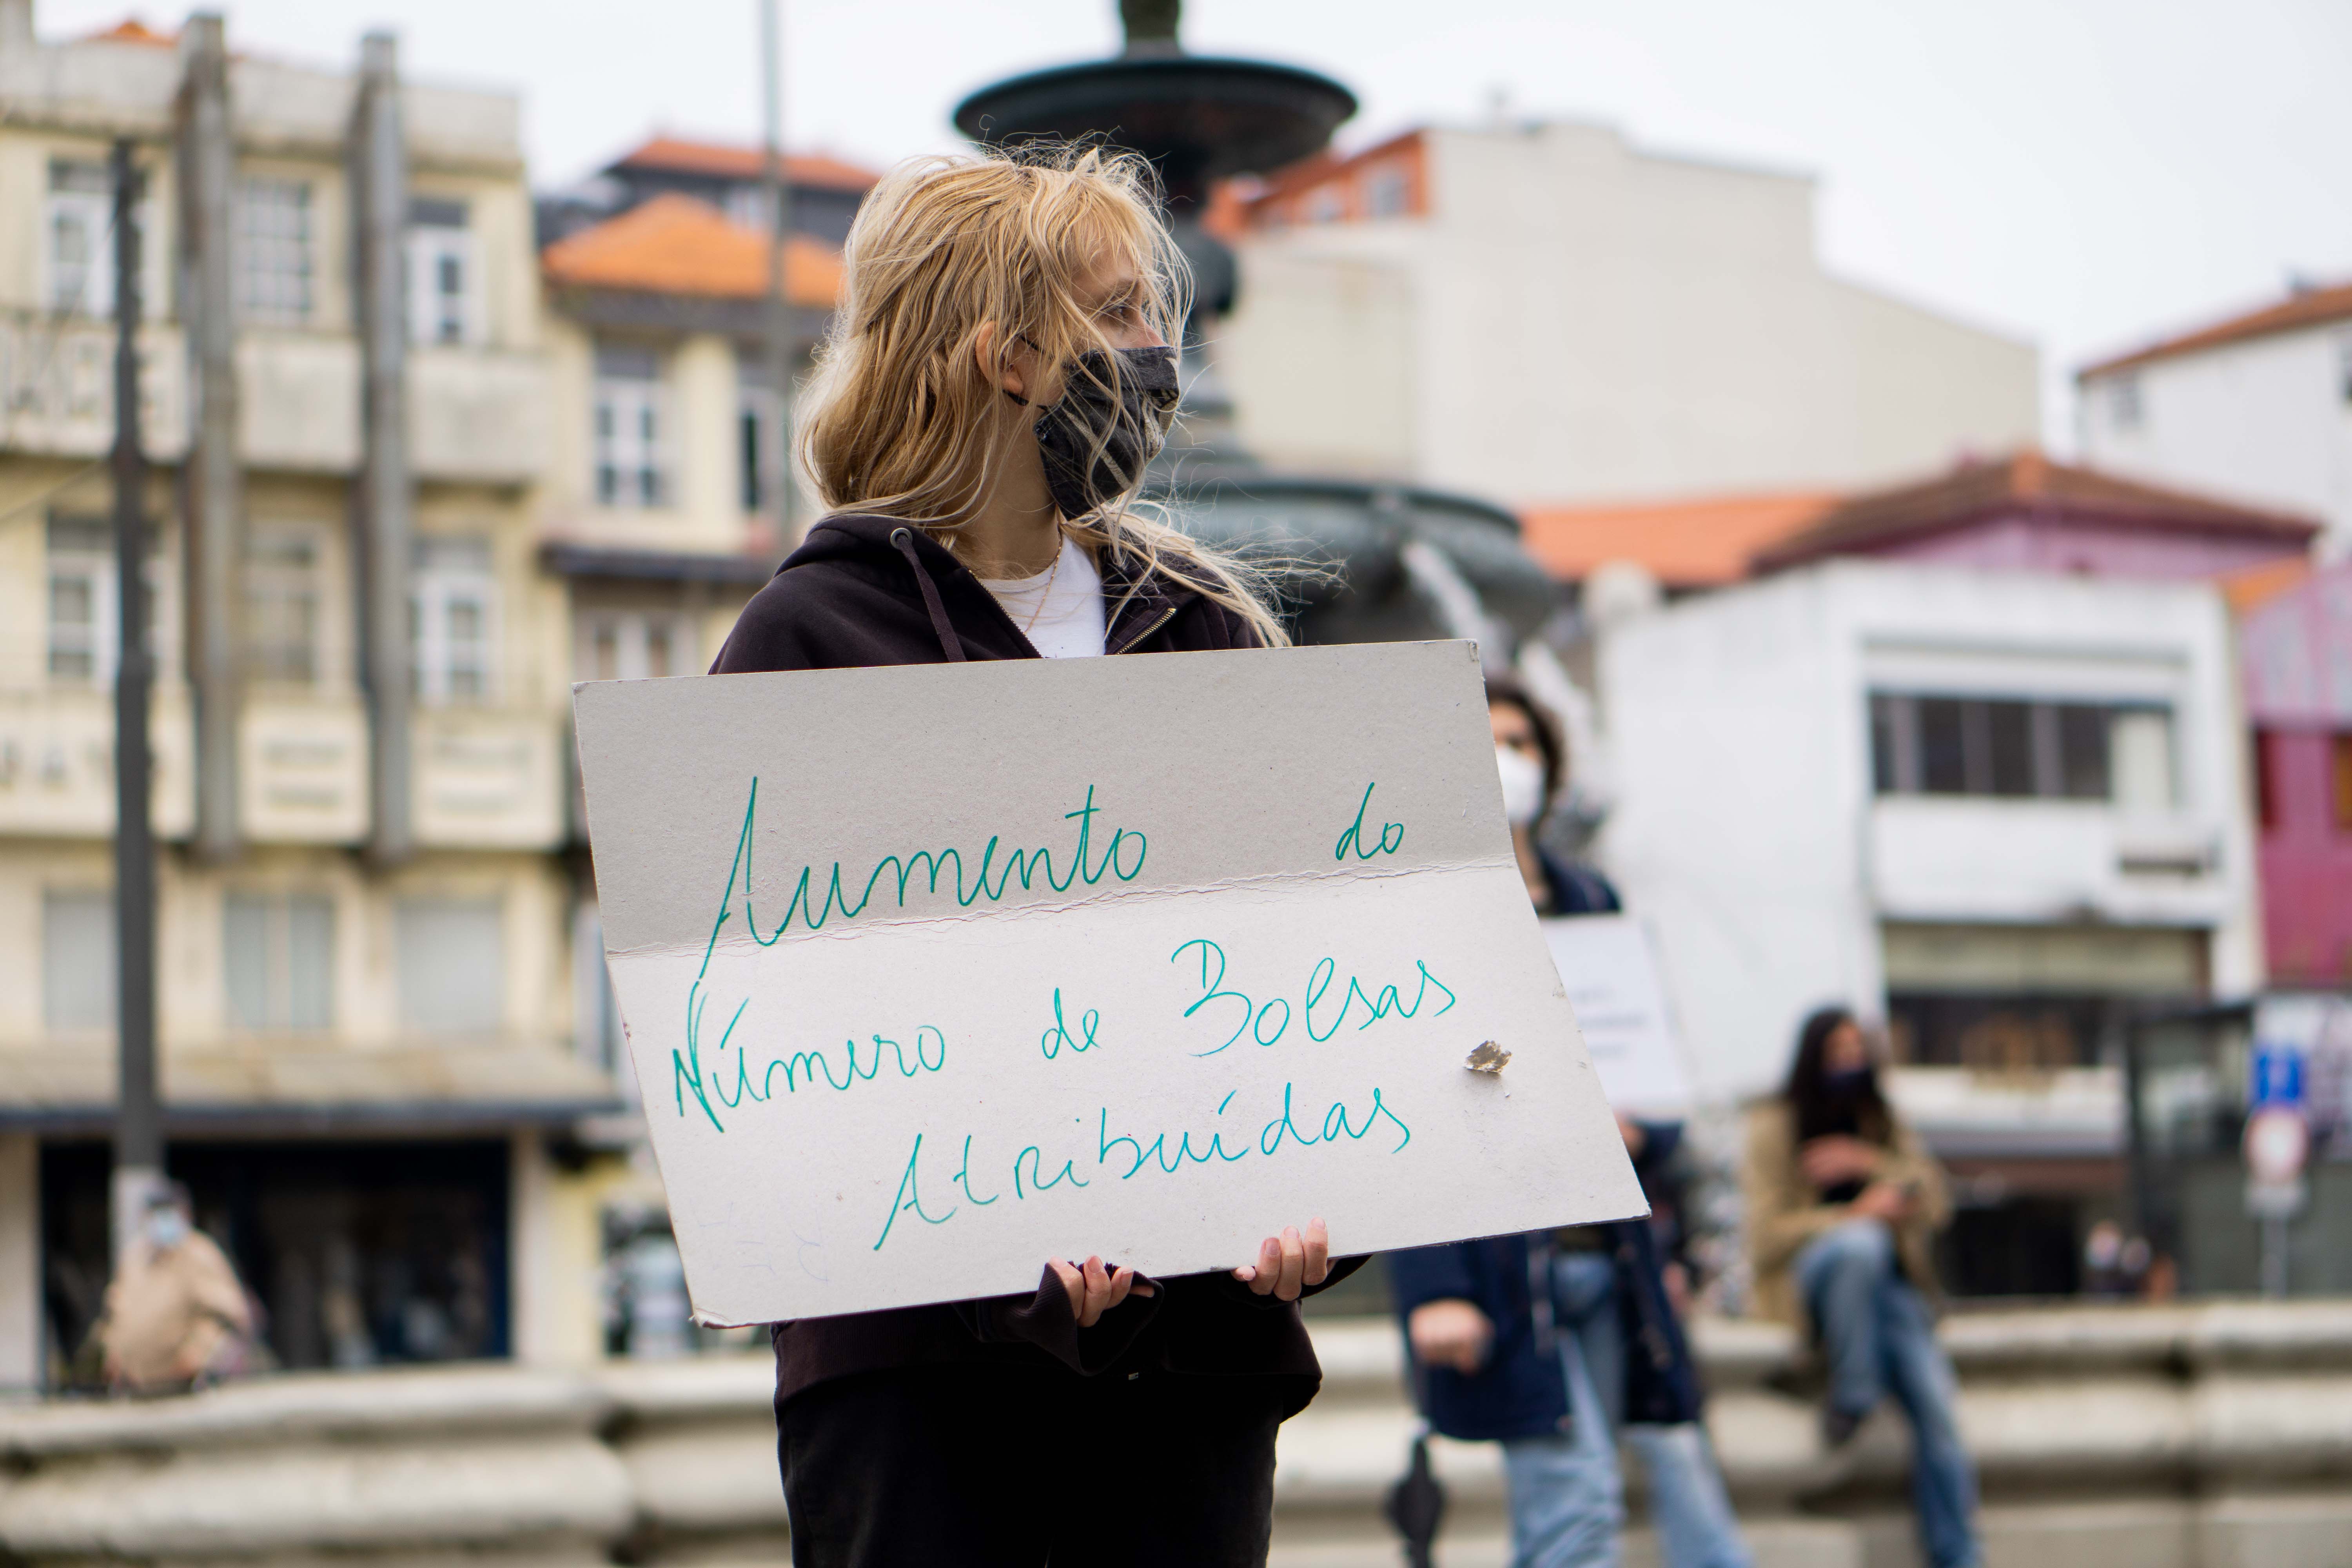 Aumento do
Número de Bolsas
Atribuídas